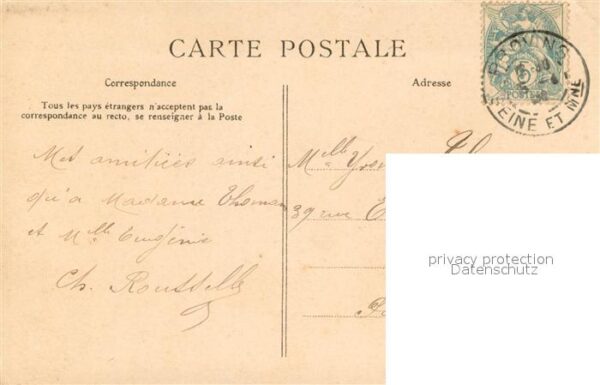 CARTE POSTALE
Correspondance
Tous les pays étrangers n'acceptent pas la
correspondance au recto, se renseigner à la Poste
Mes amitiés ainsi
qu'à Madame Thomas
et Mlle Eugénie
Ch. Rousselle
Adresse
PROVINS
SEINE ET MNE
5
POSTES
Mlle Yvo
39 rue
privacy protection
Datenschutz